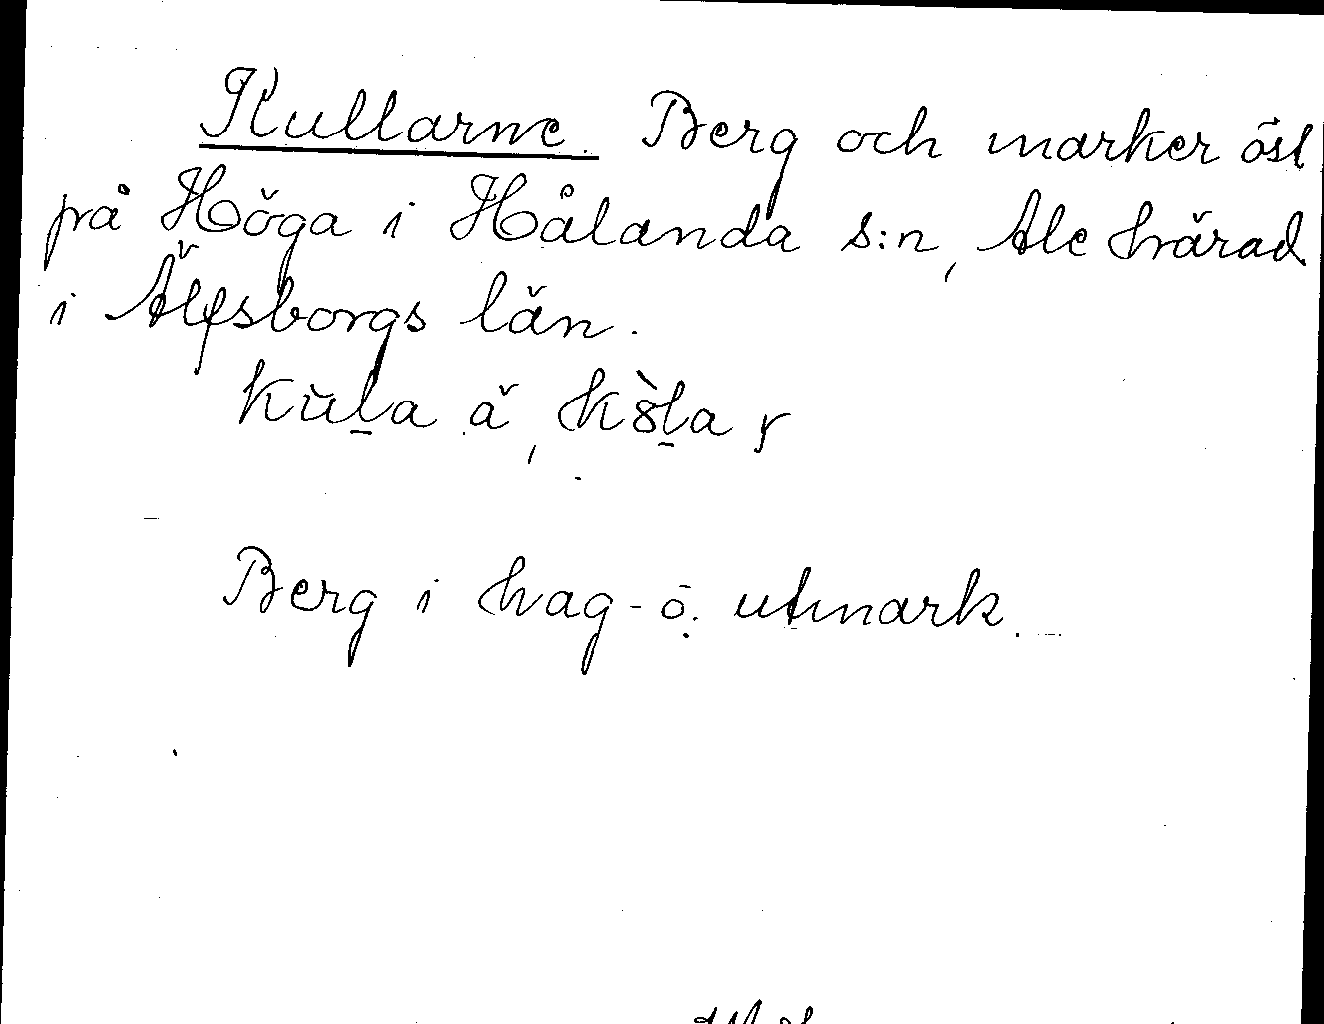 Kullarne. Berg och marker öst
på Höga i Hålanda s:n, Ale härad
i Älfsborgs län.
Berg i hag- o. utmark.